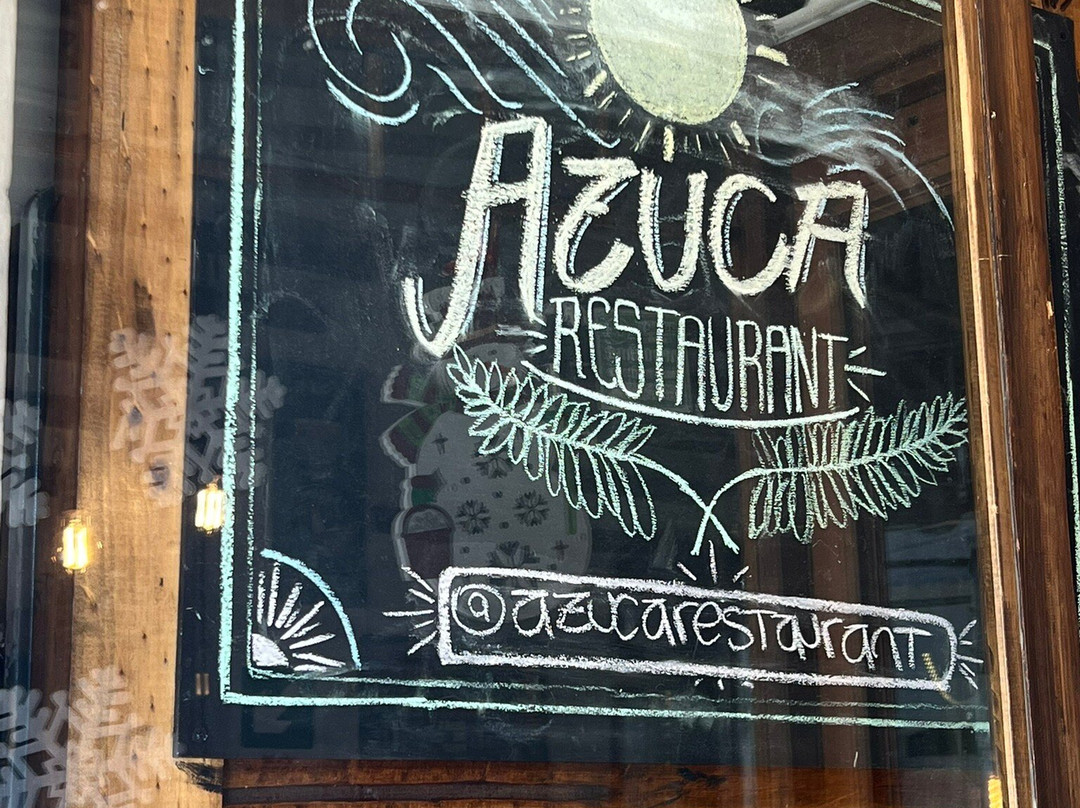 AZÚCA
RESTAURANT
@azucarestaurant